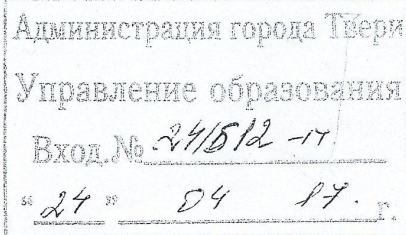 Администрация города Твери
Управление образования
Вход.№ 24/512-п
“24” 04 17. г.